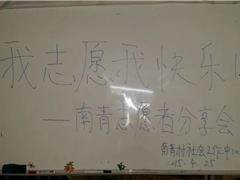 我志愿我快乐!
——南青志愿者分享会
南青村社会工作中心
2015.4.25